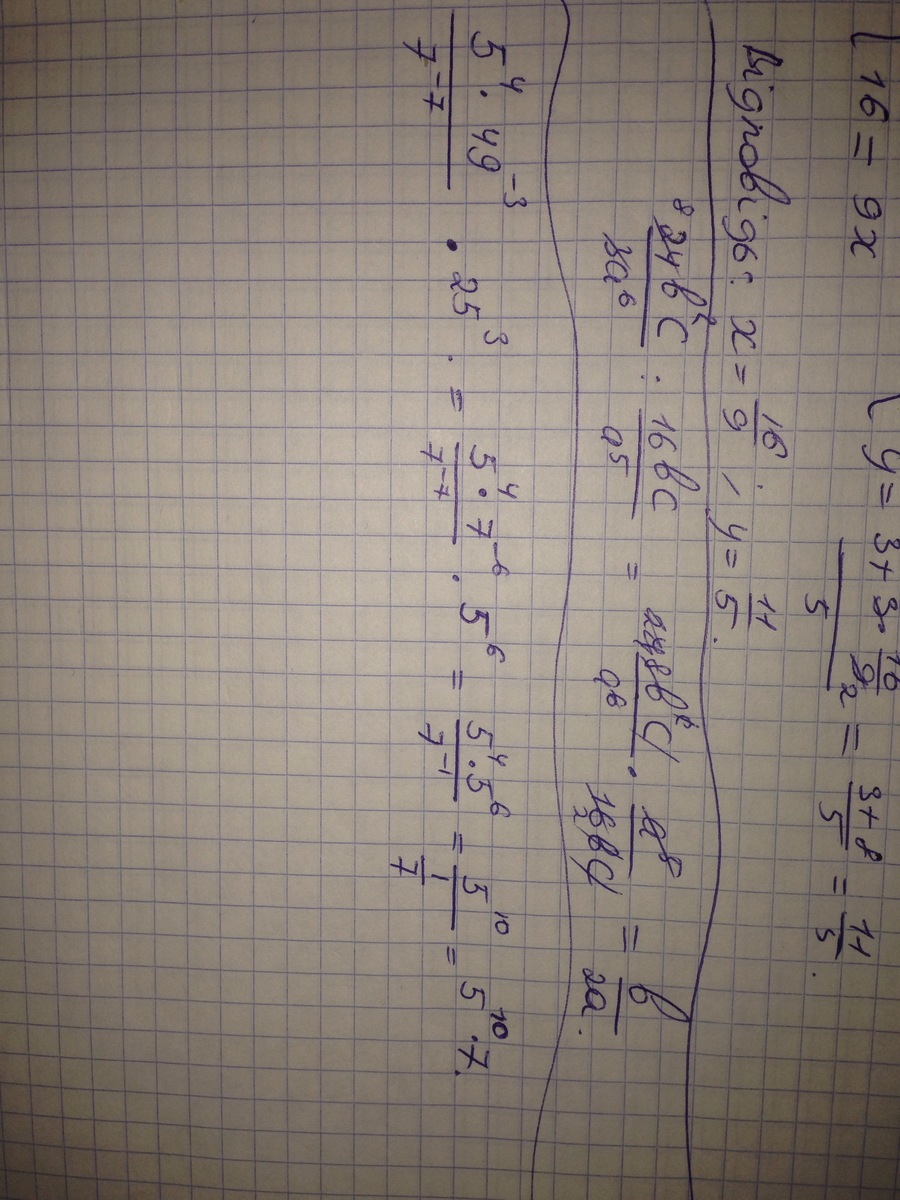 { 16 = 9x
{ y = (3 + 3 · 16/9₂)/5 = (3 + 8)/5 = 11/5.
Відповідь: x = 16/9 ; y = 11/5.
⁸24b²c/3a⁶ : 16bc/a⁵ = b/2a.
(5⁴ · 49⁻³)/7⁻⁷ · 25³ · = (5⁴ · 7⁻⁶)/7⁻⁷ · 5⁶ = (5⁴ · 5⁶)/7⁻¹ = 5¹⁰/(1/7) = 5¹⁰ · 7.